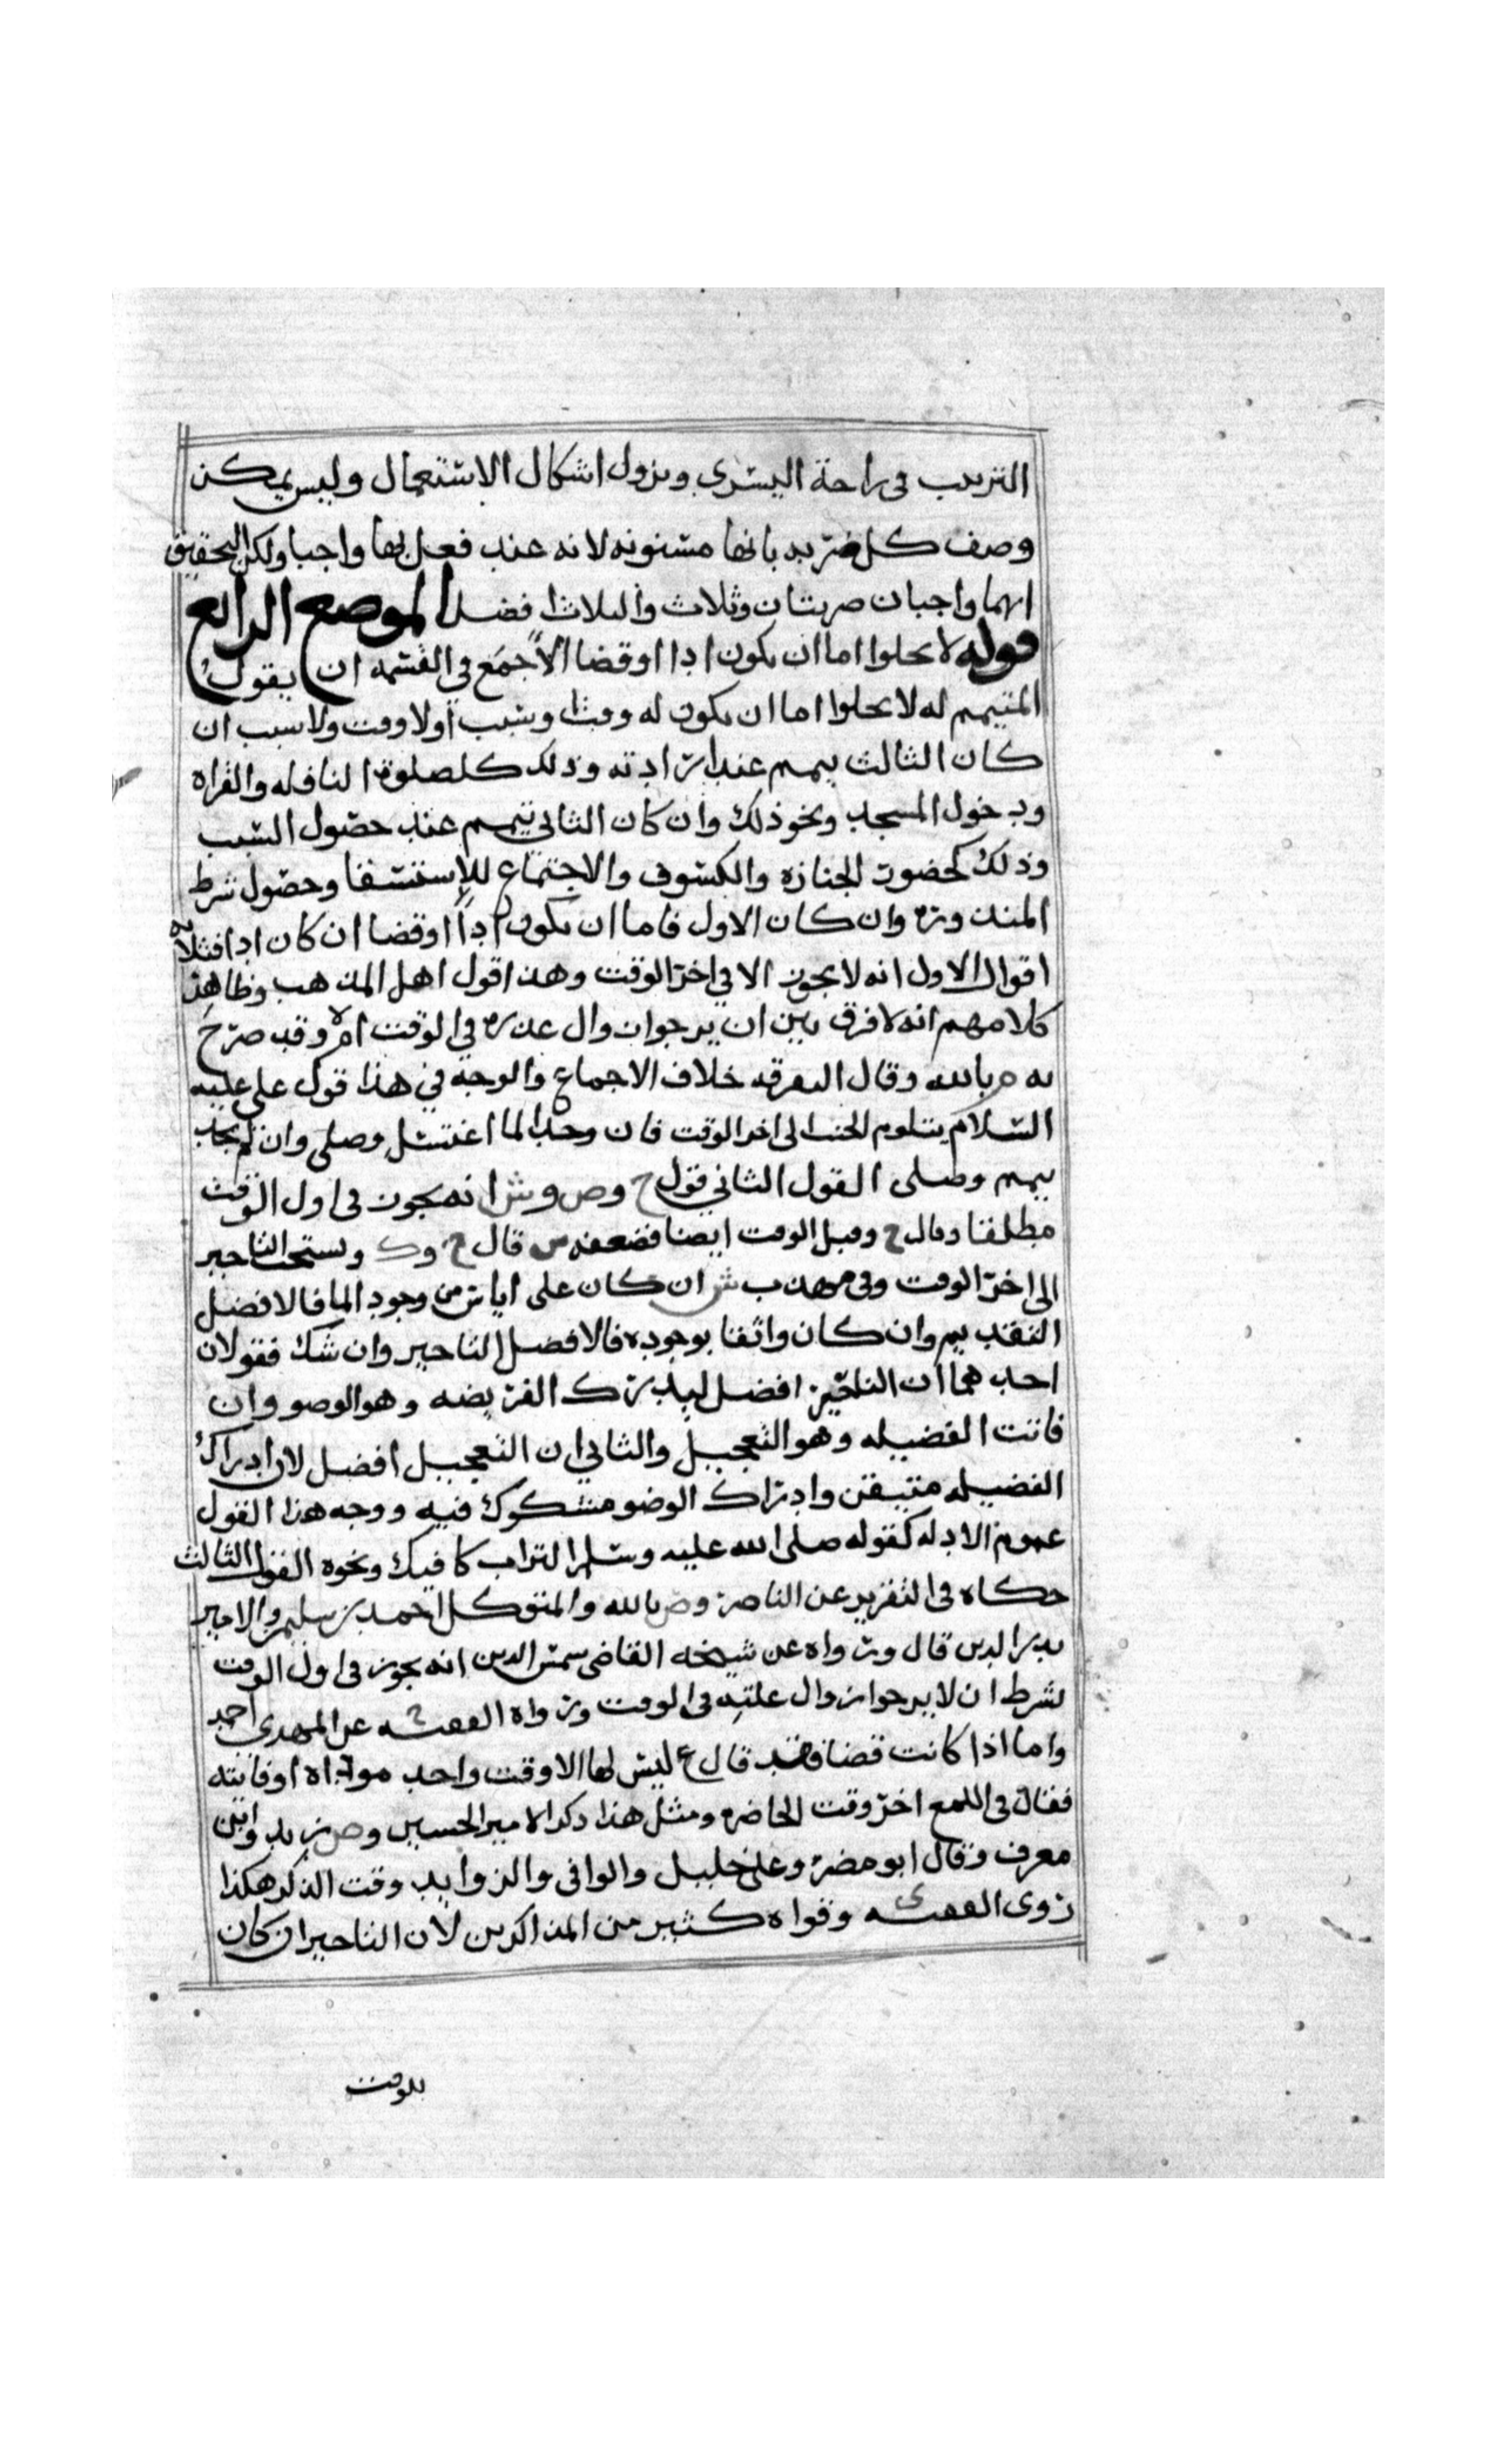 الترتيب في راحة اليسرى ويزول اشكال الاستعمال وليس يمكن
وصف كل ضربه بانها مسنونه لانه عند فعل لها واجبا ولكن التحقيق
انهما واجبان ضربتان وثلاث والثلاث افضل الموضع الرابع
قوله لا يخلوا اما ان يكون ادا او قضا الاجمع في القسمه ان يقول
المتيمم له لا يخلوا اما ان يكون له وقت او سبب او لا وقت ولا سبب ان
كان الثالث يمم عند ارادته وذلك كصلوة النافله والقراه
ودخول المسجد ونحو ذلك وان كان الثاني تيمم عند حصول السبب
وذلك كحضور الجنازه والكسوف والاجتماع للاستسقا وحصول شرط
المنذوره وان كان الاول فاما ان يكون ادا او قضا ان كان ادا فثلاثه
اقوال الاول انه لا يجوز الا في اخر الوقت وهذا قول اهل المذهب وظاهر
كلامهم انه لا فرق بين ان يرجوا زوال عذره في الوقت ام لا وقد صرح
به م بالله وقال التفرقه خلاف الاجماع والوجه في هذا قول علي عليه
السلام يتلوم الجنب الى اخر الوقت فان وجد الما اغتسل وصلى وان لم يجد
تيمم وصلى القول الثاني قول ح وص وش انه يجوز في اول الوقت
مطلقا وقال ح وقبل الوقت ايضا فضعفه س قال ح وك ويستحب التاخير
الى اخر الوقت وفي مهذب ش ان كان على اياس من وجود الما فالافضل
التقديم وان كان واثقا بوجوده فالافضل التاخير وان شك فقولان
احدهما ان التاخير افضل ليلا يترك الفريضه وهو الوضو وان
فاتت الفضيله وهو التعجيل والثاني ان التعجيل افضل لان ادراك
الفضيله متيقن وادراك الوضو مشكوك فيه ووجه هذا القول
عموم الادله كقوله صلى الله عليه وسلم التراب كافيك ونحوه القول الثالث
حكاه في التقرير عن الناصر وص بالله والمتوكل احمد بن سليمن والامير
بدر الدين قال ورواه عن شيخه القاضي شمس الدين انه يجوز في اول الوقت
بشرط ان لا يرجوا زوال علته في الوقت ورواه الفقيه ح عن المهدي احمد
واما اذا كانت قضا فقد قال ع ليس لها الا وقت واحد موداه او فائته
فقال في اللمع اخر وقت الحاضره ومثل هذا ذكر الامير الحسين وص زيد وابن
معرف وقال ابو مضر وعلي خليل والوافي والزوايد وقت الذكر هكذا
روى الفقيه ى وقواه كثير من المذاكرين لان التاخير ان كان
للوقت